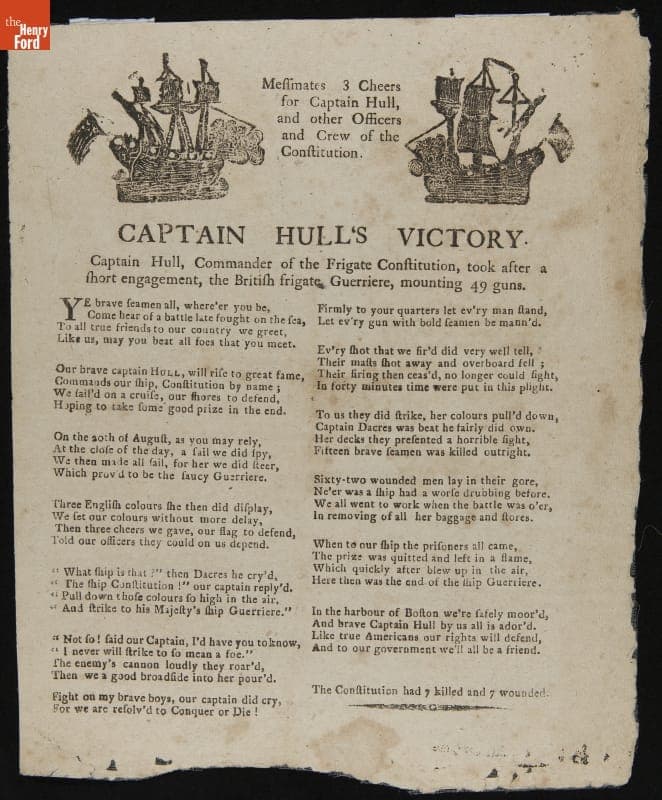 the
Henry
Ford
Meſſmates 3 Cheers
for Captain Hull,
and other Officers
and Crew of the
Conſtitution.
CAPTAIN HULL'S VICTORY.
Captain Hull, Commander of the Frigate Conſtitution, took after a
ſhort engagement, the Britiſh frigate, Guerriere, mounting 49 guns.
YE brave ſeamen all, where'er you be,
Come hear of a battle late fought on the ſea,
To all true friends to our country we greet,
Like us, may you beat all foes that you meet.
Our brave captain HULL, will riſe to great fame,
Commands our ſhip, Conſtitution by name;
We ſail'd on a cruiſe, our ſhores to defend,
Hoping to take ſome good prize in the end.
On the 20th of Auguſt, as you may rely,
At the cloſe of the day, a ſail we did ſpy,
We then made all ſail, for her we did ſteer,
Which prov'd to be the ſaucy Guerriere.
Three Engliſh colours ſhe then did diſplay,
We ſet our colours without more delay,
Then three cheers we gave, our flag to defend,
Told our officers they could on us depend.
“ What ſhip is that?” then Dacres he cry'd,
“ The ſhip Conſtitution!” our captain reply'd.
“ Pull down thoſe colours ſo high in the air,
“ And ſtrike to his Majeſty's ſhip Guerriere.”
“ Not ſo! ſaid our Captain, I'd have you to know,
“ I never will ſtrike to ſo mean a foe.”
The enemy's cannon loudly they roar'd,
Then we a good broadſide into her pour'd.
Fight on my brave boys, our captain did cry,
For we are reſolv'd to Conquer or Die!
Firmly to your quarters let ev'ry man ſtand,
Let ev'ry gun with bold ſeamen be mann'd.
Ev'ry ſhot that we fir'd did very well tell,
Their maſts ſhot away and overboard fell;
Their firing then ceas'd, no longer could fight,
In forty minutes time were put in this plight.
To us they did ſtrike, her colours pull'd down,
Captain Dacres was beat he fairly did own.
Her decks they preſented a horrible ſight,
Fifteen brave ſeamen was killed outright.
Sixty-two wounded men lay in their gore,
Ne'er was a ſhip had a worſe drubbing before.
We all went to work when the battle was o'er,
In removing of all her baggage and ſtores.
When to our ſhip the priſoners all came,
The prize was quitted and left in a flame,
Which quickly after blew up in the air,
Here then was the end of the ſhip Guerriere.
In the harbour of Boſton we're ſafely moor'd,
And brave Captain Hull by us all is ador'd.
Like true Americans our rights will defend,
And to our government we'll all be a friend.
The Conſtitution had 7 killed and 7 wounded.